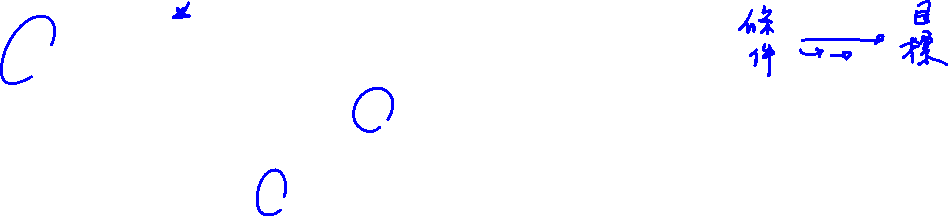 條件 → 目標